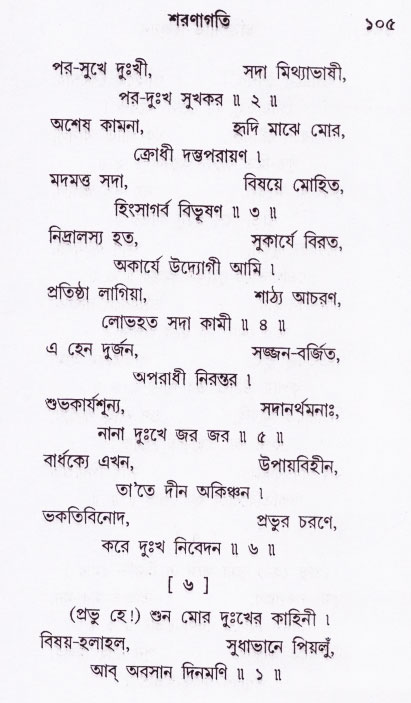 শরণাগতি ১০৫
পর-সুখে দুঃখী, সদা মিথ্যাভাষী,
পর-দুঃখ সুখকর ॥ ২ ॥
অশেষ কামনা, হৃদি মাঝে মোর,
ক্রোধী দম্ভপরায়ণ ।
মদমত্ত সদা, বিষয়ে মোহিত,
হিংসাগর্ব বিভূষণ ॥ ৩ ॥
নিদ্রালস্য হত, সুকার্যে বিরত,
অকার্যে উদ্যোগী আমি ।
প্রতিষ্ঠা লাগিয়া, শাঠ্য আচরণ,
লোভহত সদা কামী ॥ ৪ ॥
এ হেন দুর্জন, সজ্জন-বর্জিত,
অপরাধী নিরন্তর ।
শুভকার্যশূন্য, সদানর্থমনাঃ,
নানা দুঃখে জর জর ॥ ৫ ॥
বার্ধক্যে এখন, উপায়বিহীন,
তা'তে দীন অকিঞ্চন ।
ভকতিবিনোদ, প্রভুর চরণে,
করে দুঃখ নিবেদন ॥ ৬ ॥
[ ৬ ]
(প্রভু হে!) শুন মোর দুঃখের কাহিনী ।
বিষয়-হলাহল, সুধাভানে পিয়লুঁ,
আব্ অবসান দিনমণি ॥ ১ ॥